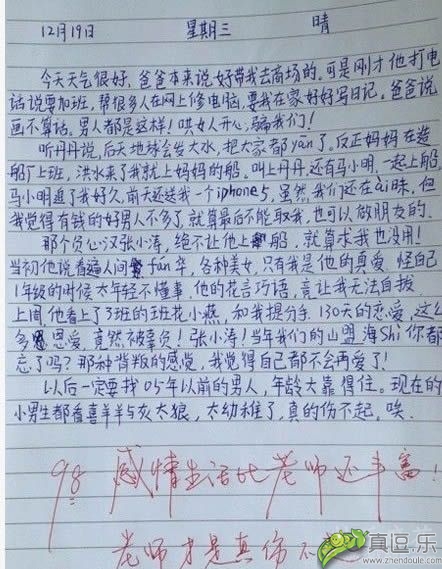 12月19日 星期三 晴
今天天气很好,爸爸本来说好带我去商场的。可是刚才他打电
话说要加班,帮很多人在网上修电脑,要我在家好好写日记。爸爸说
画不算话。男人都是这样!哄女人开心,骗我们!
听丹丹说,后天地球会发大水,把大家都yān了。反正妈妈在造
船厂上班,洪水来了我就上妈妈的船。叫上丹丹,还有马小明,一起上船,
马小明追了我好久,前天还送我一个iphone5,虽然我们还在ài昧,但
我觉得有钱的好男人不多了,就算最后不能取我,也可以做朋友的。
那个负心汉张小涛,绝不让他上船,就算求我也没用!
当初他说看遍人间fán华,各种美女,只有我是他的真爱,怪自己
1年级的时候太年轻不懂事,他的花言巧语,竟让我无法自拔
上周他看上了3班的班花小燕,和我提分手,130天的恋爱,这么
多恩爱,竟然被辜负!张小涛!当年我们的山盟海Shi你都
忘了吗?那种背叛的感觉,我觉得自己都不会再爱了!
以后一定要找05年以前的男人,年龄大靠得住。现在的
小男生都看喜羊羊与灰太狼,太幼稚了,真的伤不起。唉
98 感情生活比老师还丰富!
老师才是真伤不
真逗.乐
www.zhendoule.com